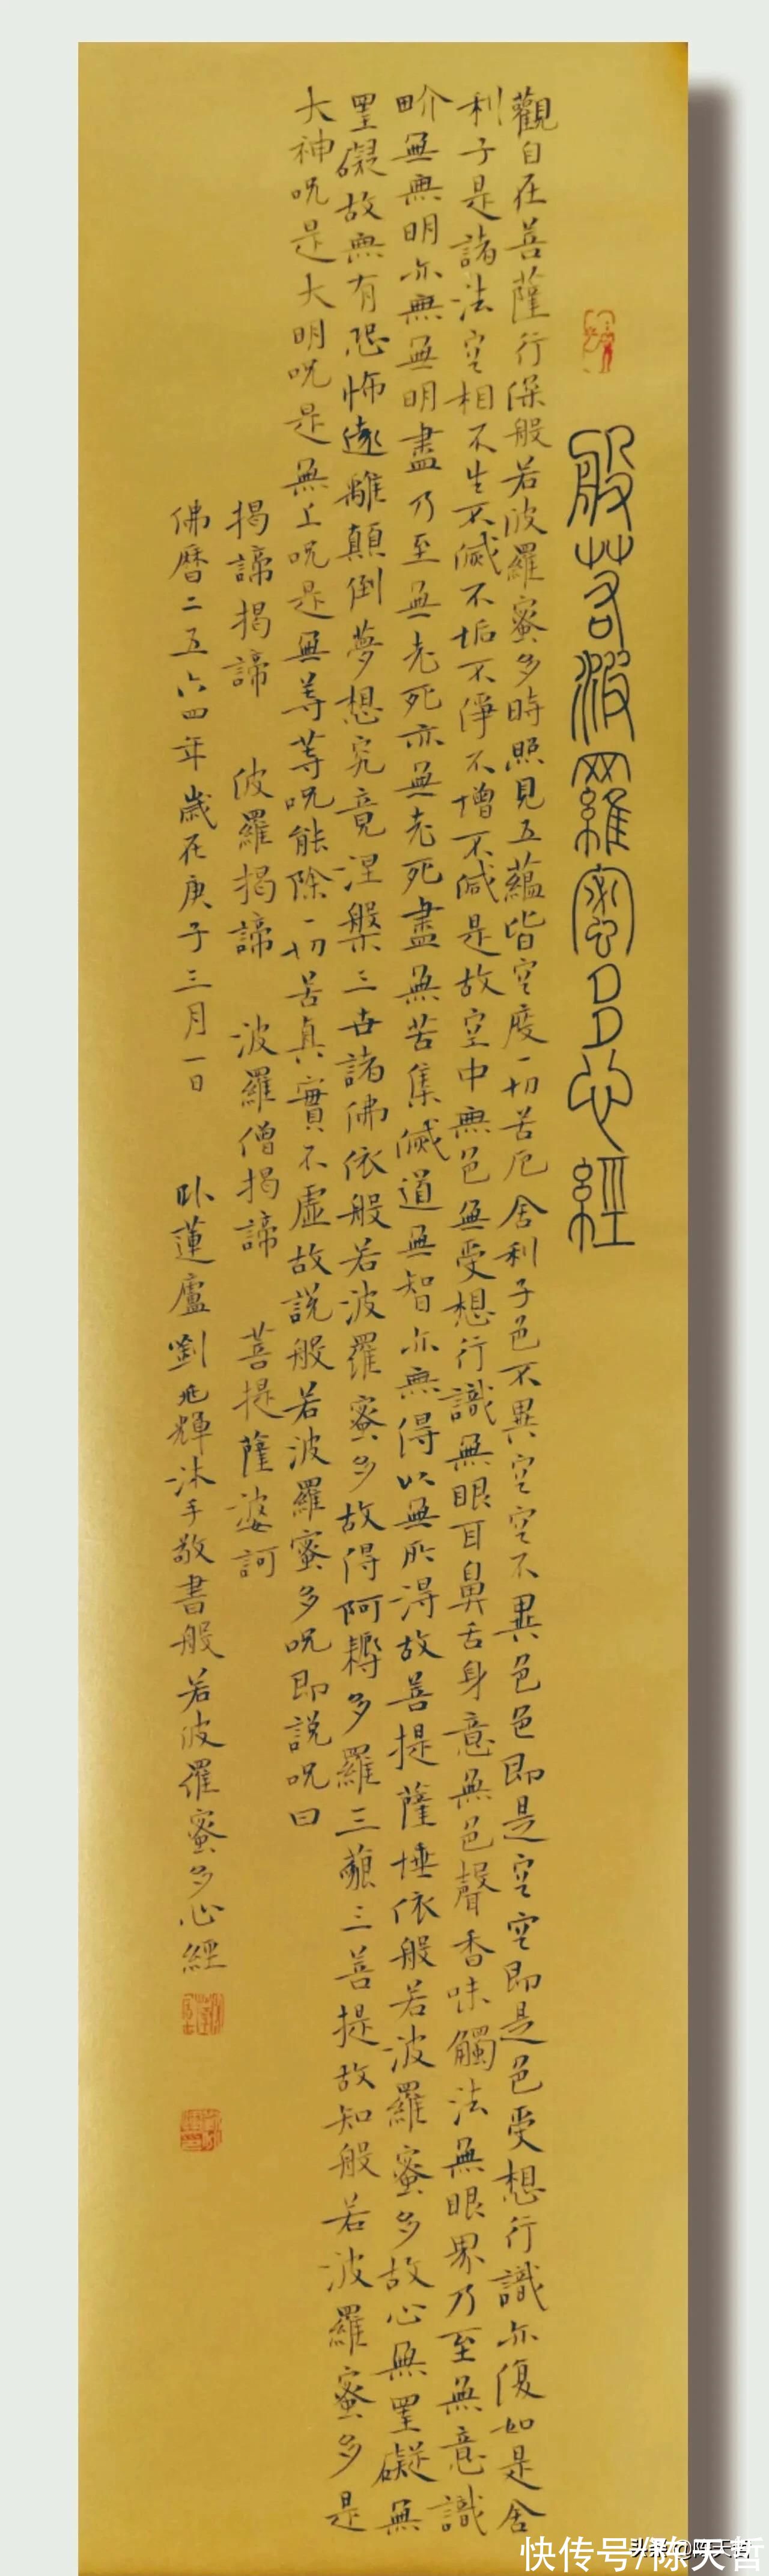 般若波羅蜜多心經
觀自在菩薩行深般若波羅蜜多時照見五蘊皆空度一切苦厄舍利子色不異空空不異色色即是空空即是色受想行識亦復如是舍
利子是諸法空相不生不滅不垢不淨不增不減是故空中無色無受想行識無眼耳鼻舌身意無色聲香味觸法無眼界乃至無意識
畍無無明亦無無明盡乃至無老死亦無老死盡無苦集滅道無智亦無得以無所得故菩提薩埵依般若波羅蜜多故心無罣礙無
罣礙故無有恐怖遠離顛倒夢想究竟涅槃三世諸佛依般若波羅蜜多故得阿耨多羅三藐三菩提故知般若波羅蜜多是
大神呪是大明呪是無上呪是無等等呪能除一切苦真實不虛故說般若波羅蜜多呪即說呪曰
揭諦揭諦 波羅揭諦 波羅僧揭諦 菩提薩婆訶
佛曆二五六四年歲在庚子三月一日 卧蓮廬劉兆輝沐手敬書般若波羅蜜多心經
快传号/陈天哲